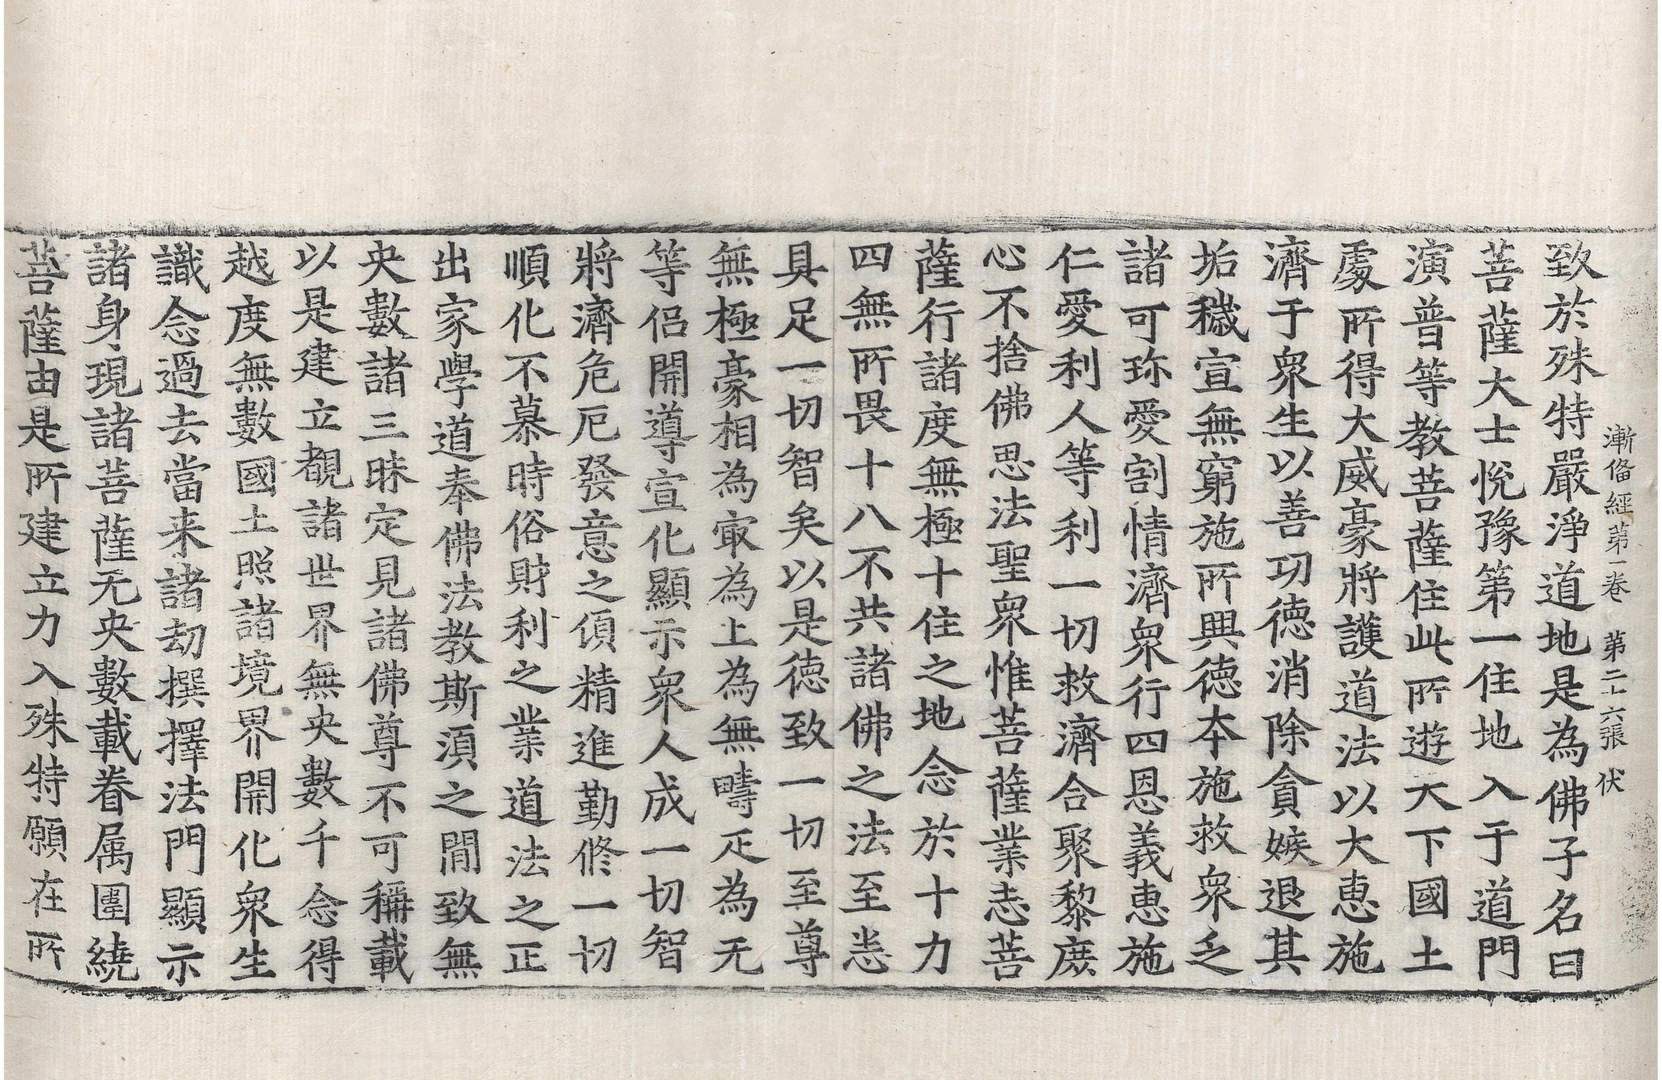 漸俻經第一卷 第二十六張 伏
致於殊特嚴淨道地是為佛子名曰
菩薩大士悅豫第一住地入于道門
演普等教菩薩住此所遊天下國土
處所得大威豪將護道法以大惠施
濟于衆生以善功德消除貪嫉退其
垢穢宣無窮施所興德本施救衆乏
諸可珎愛割情濟衆行四恩義惠施
仁愛利人等利一切救濟合聚黎庶
心不捨佛思法聖衆惟菩薩業志菩
薩行諸度無極十住之地念於十力
四無所畏十八不共諸佛之法至恙
具足一切智矣以是德致一切至尊
無極豪相為㝡為上為無疇疋為无
等侶開導宣化顯示衆人成一切智
將濟危厄發意之傾精進勤修一切
順化不慕時俗財利之業道法之正
出家學道奉佛法教斯湏之間致無
央數諸三昧定見諸佛尊不可稱載
以是建立覩諸世界無央數千念得
越度無數國土照諸境界開化衆生
識念過去當来諸劫撰擇法門顯示
諸身現諸菩薩无央數載眷属圍繞
菩薩由是所建立力入殊特願在所